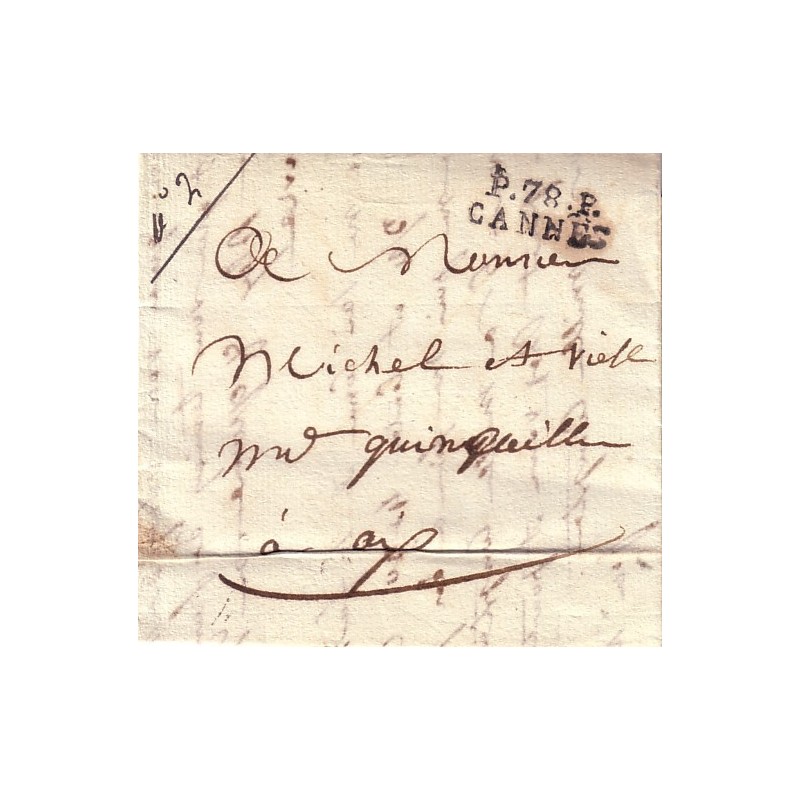 P.78.P.
CANNES
Monsieur
Michel et
md quinquiller
à aix